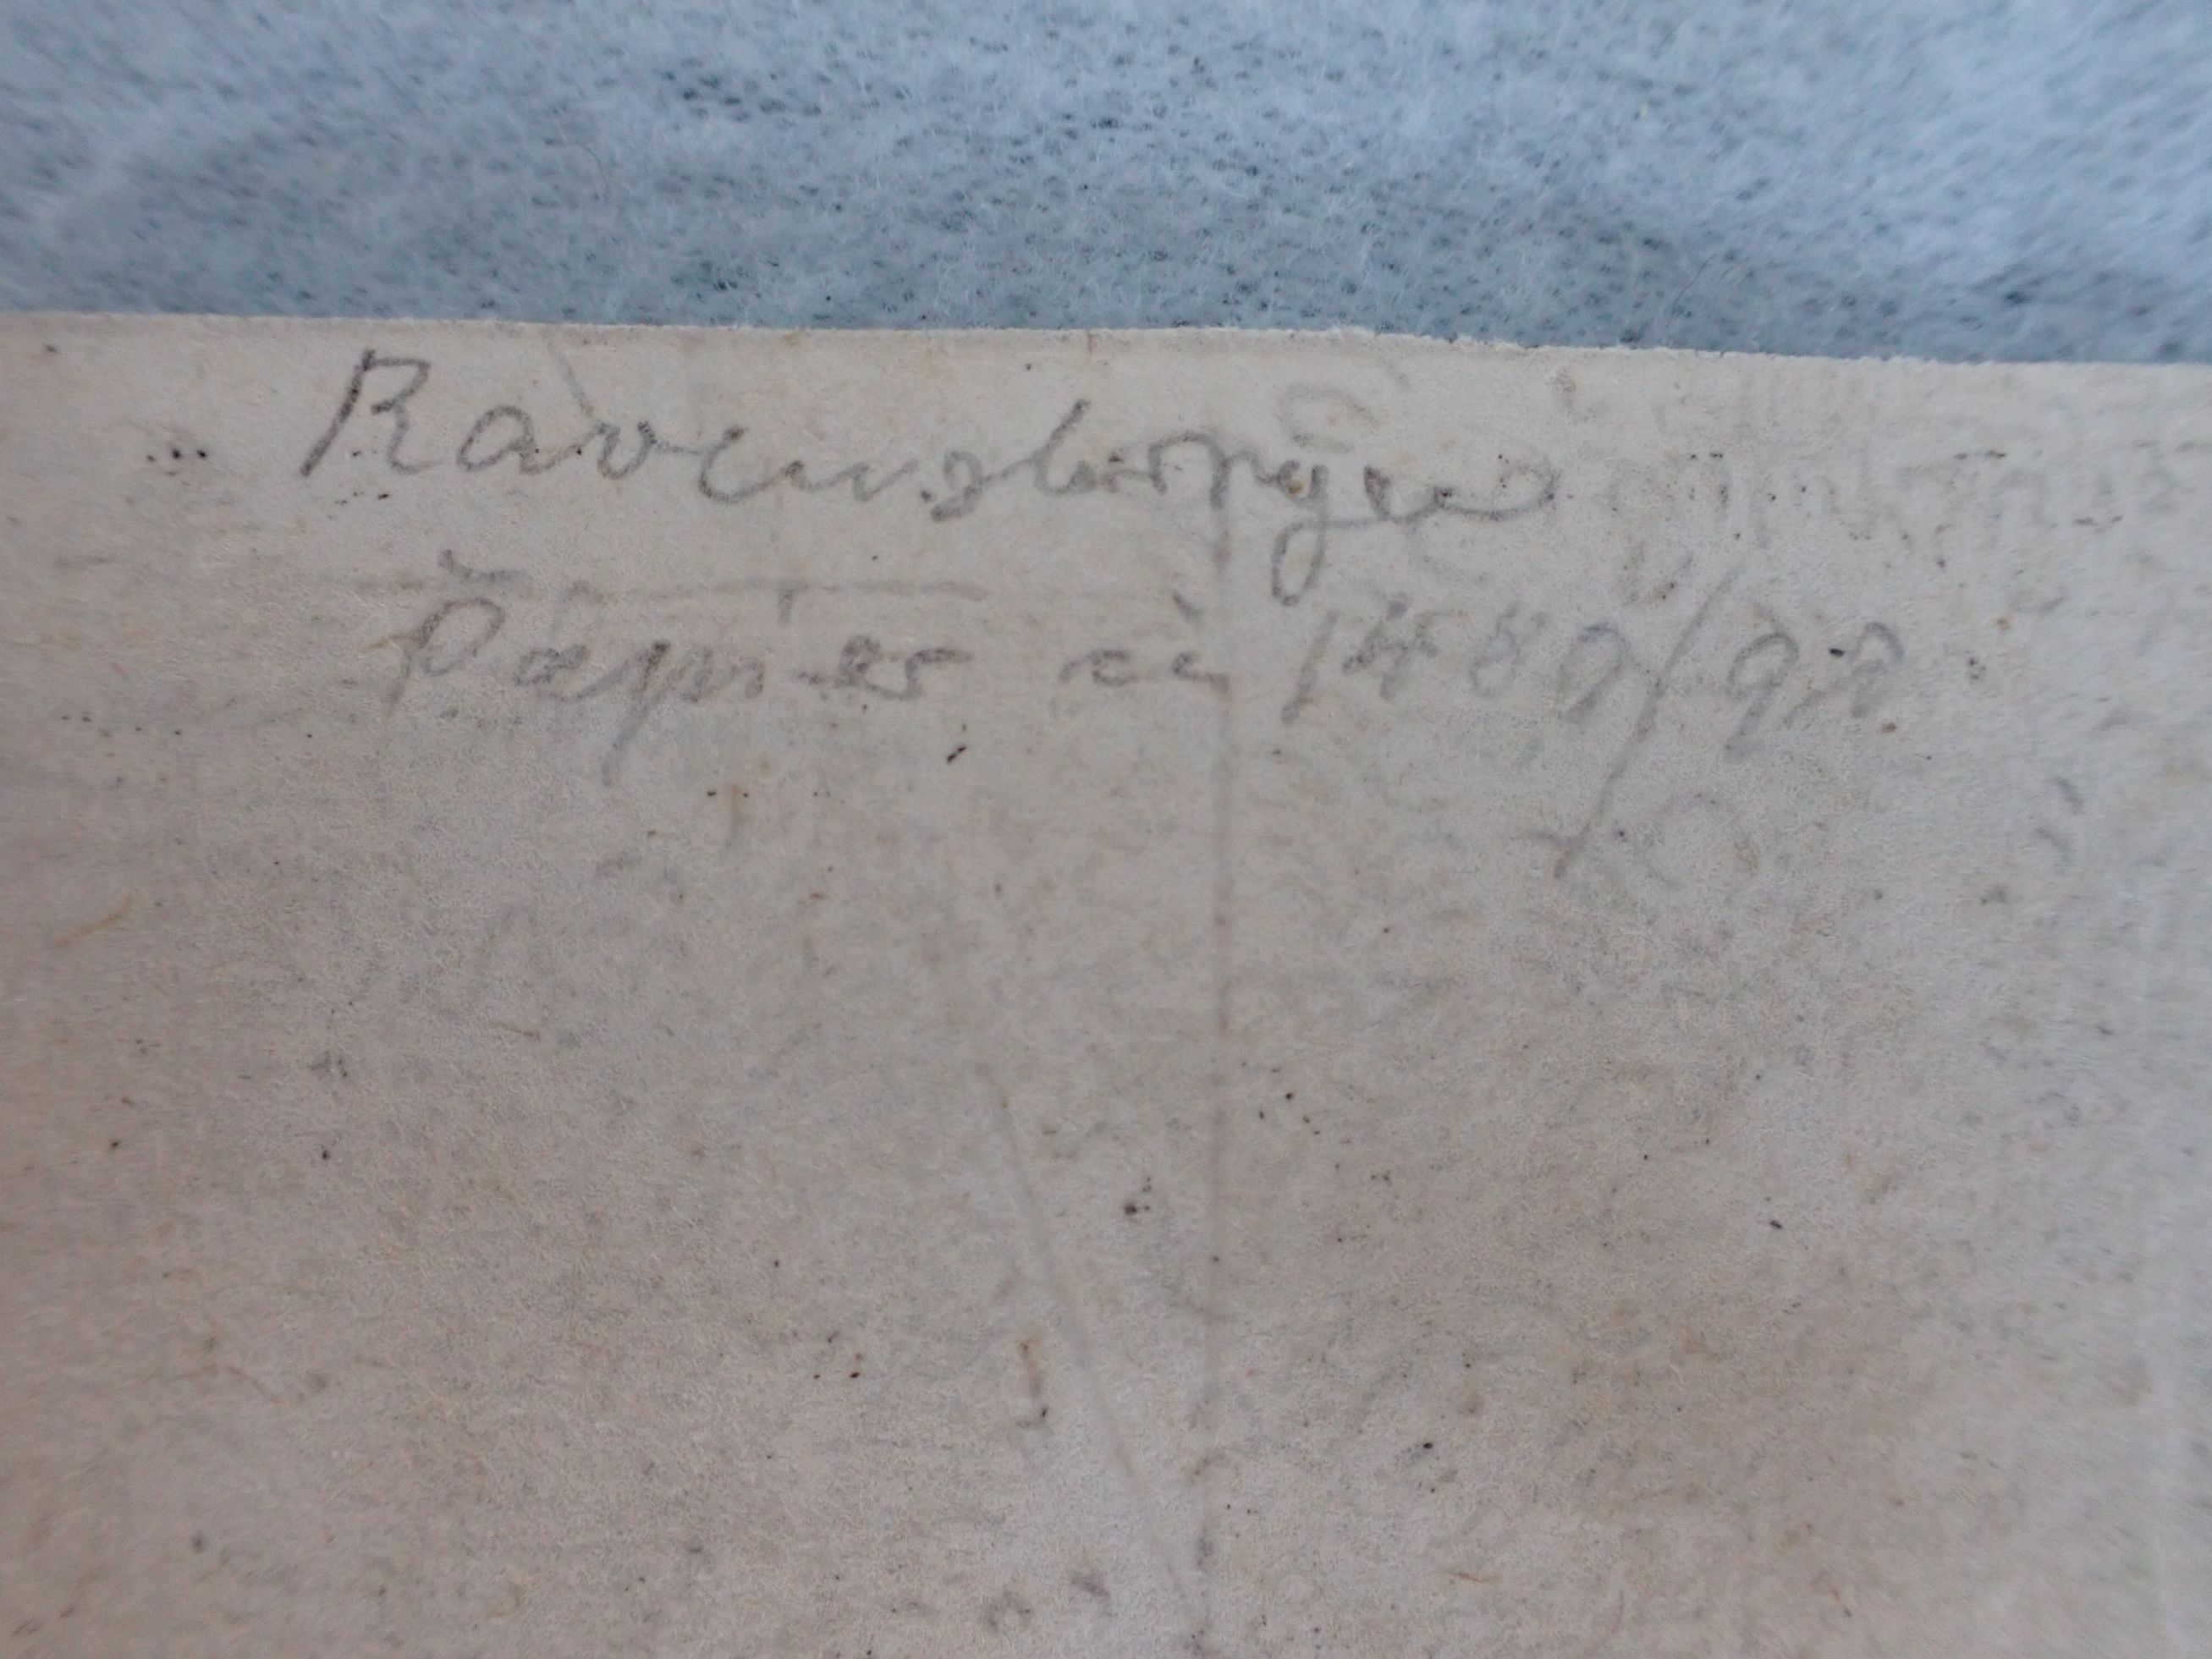 Ravensburger
Papier ca 1489/92